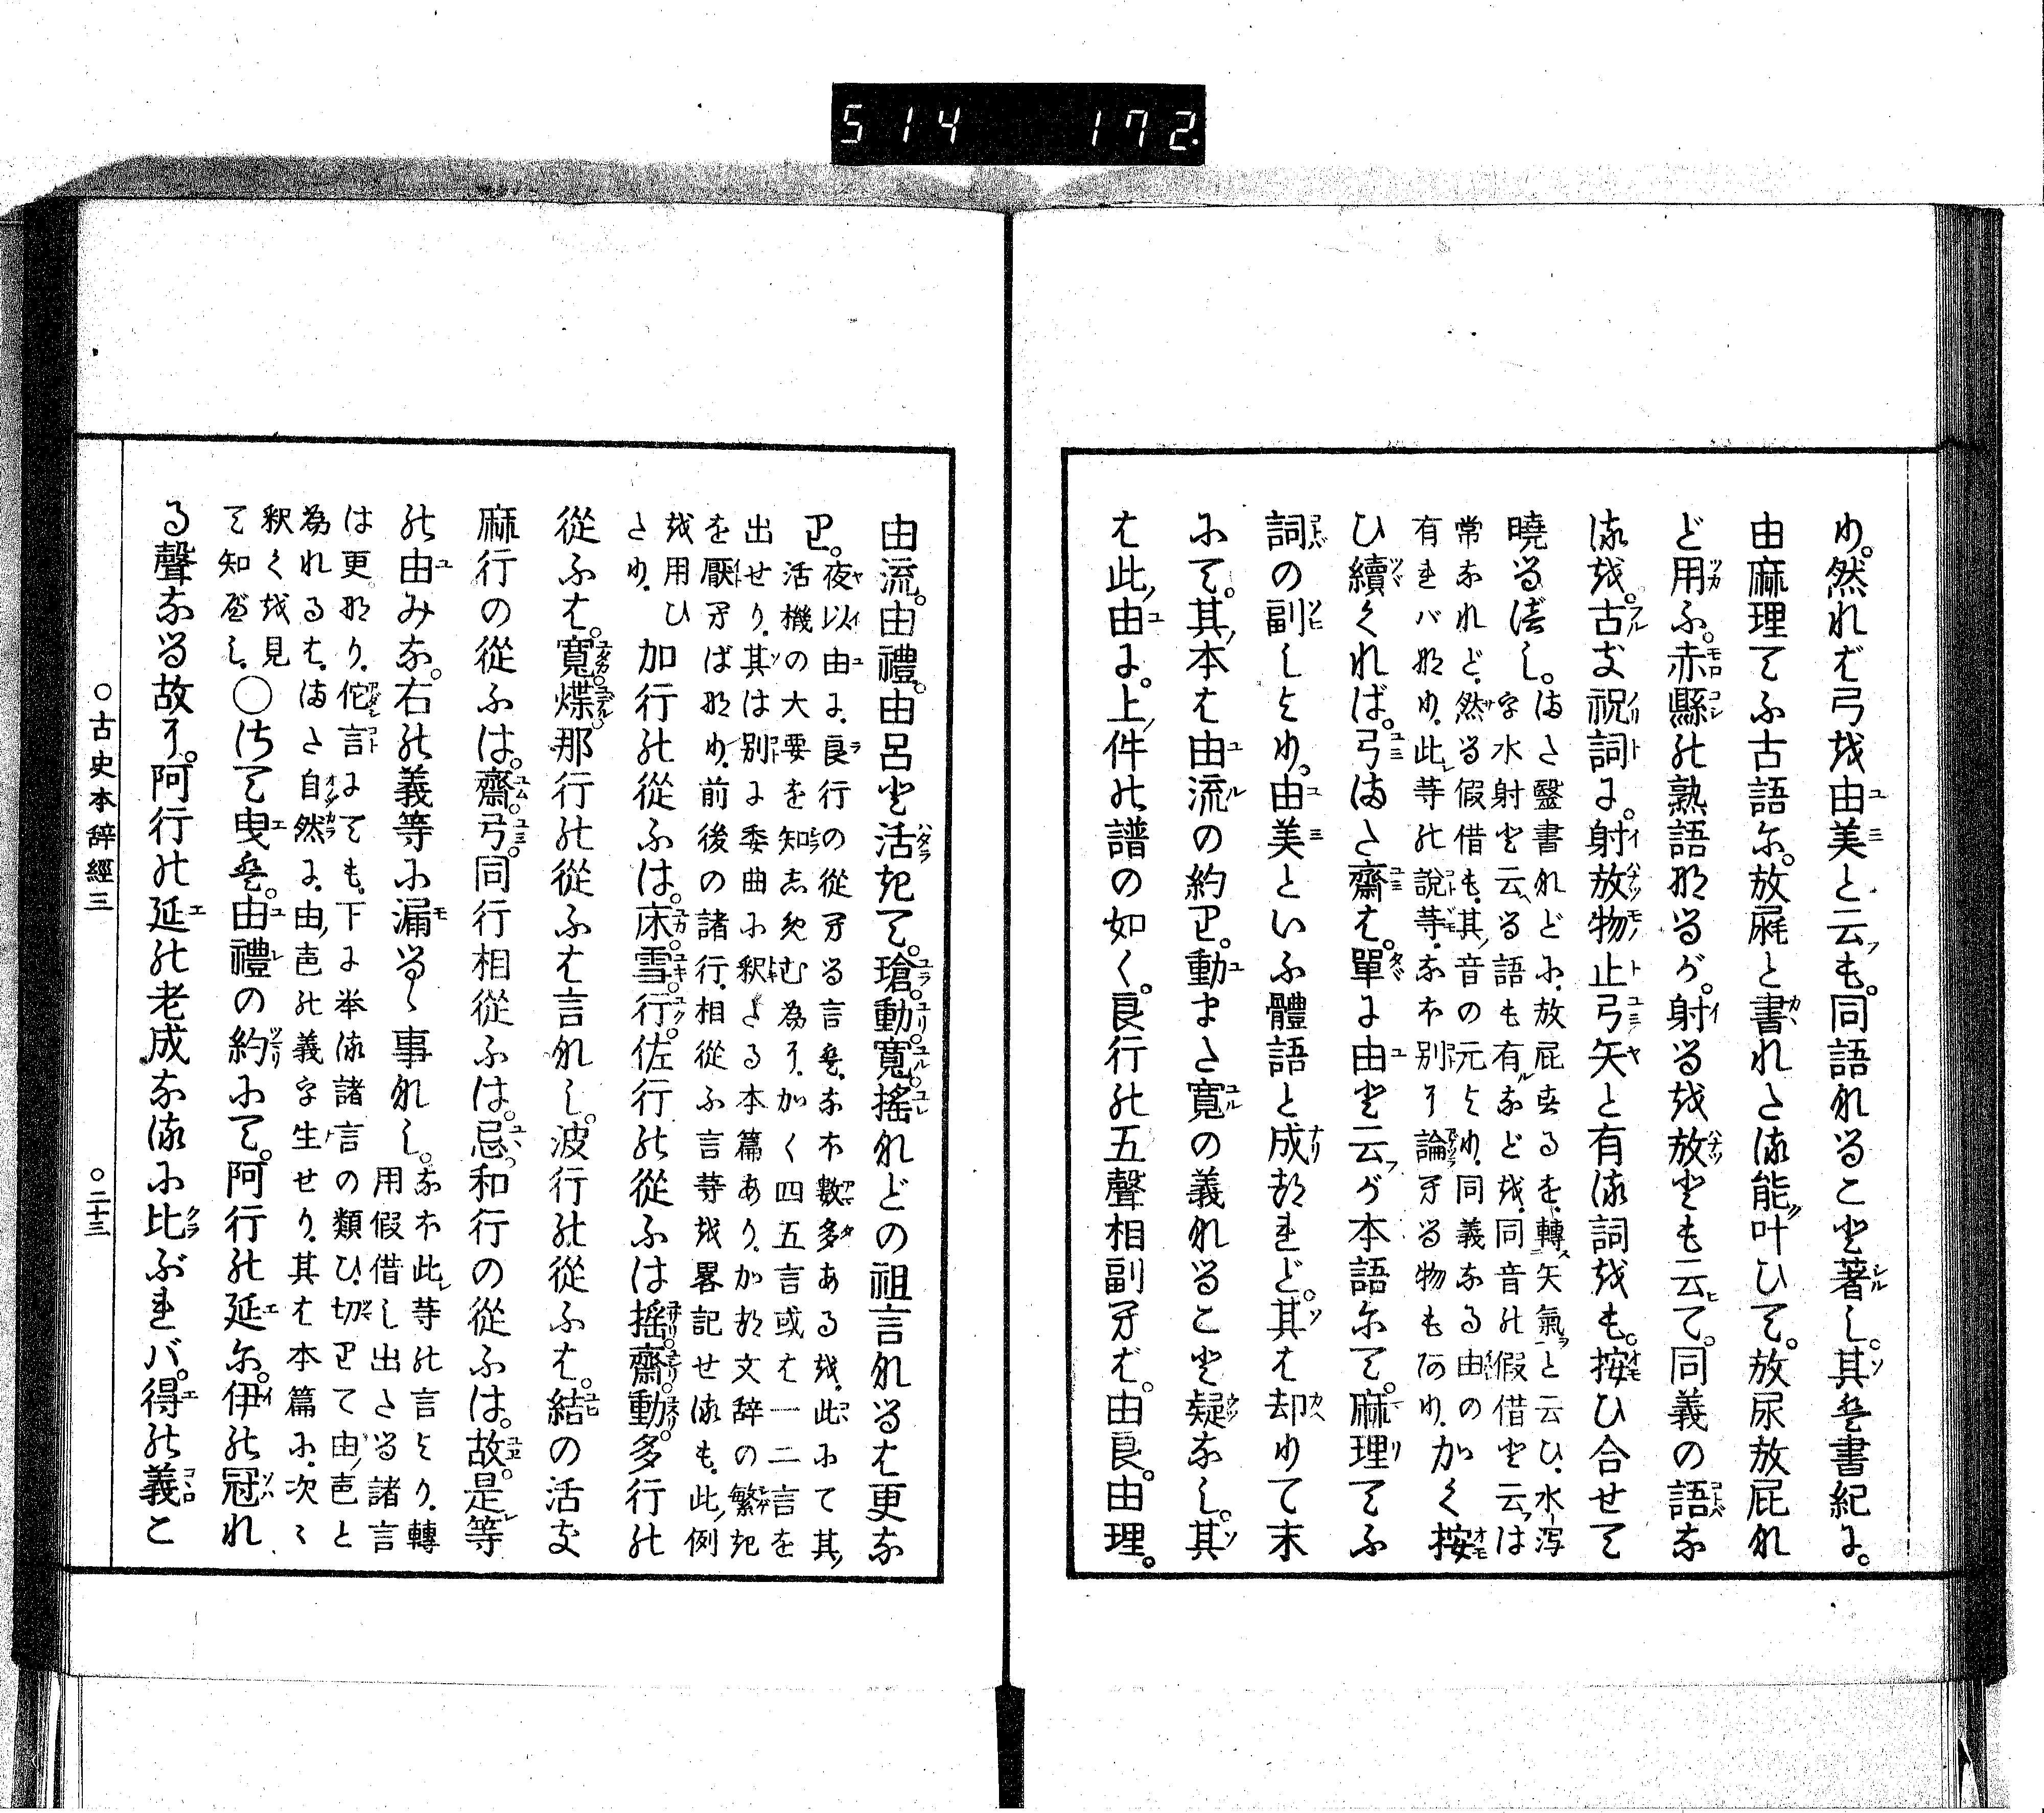 514 172.
り。然れば弓を由美と云も。同語なること著し。其は書紀に。
由麻理てふ古語に。放屣と書れたる能叶ひて。放尿放屁な
ど用ふ。赤縣の熟語なるが。射るを放とも云て。同義の語な
るを。古き祝詞に。射放物止弓矢と有る詞をも。按ひ合せて
曉るべし。
また醫書などに、放屁するを、轉矢氣と云ひ、水瀉
字水射と云る語も有などを、同音の假借と云は
常なれど、然る假借も、其音の元より、同義なる由の
有ればなり、此等の説等、なほ別に論へる物もあり、かく按
ひ續くれば。弓また齋は。單に由と云が本語にて。麻理てふ
詞の副しより。由美といふ體語と成たれど。其は却りて末
にて。其本は由流の約り。動また寛の義なること疑なし。其
は此由に。上件の譜の如く。良行の五聲相副へば。由良。由理。
由流。由禮。由呂と活きて。瑲動寛搖などの祖言なるは更な
り。
夜以由に、良行の從へる言は、なほ數多あるを、此にて其
活機の大要を知しめむ為に、かく四五言或は一二言を
出せり、其は別に委曲に釈たる本篇あり、かゝる文辞の繁き
を厭へばなり、前後の諸行、相從ふ言等を畧記せるも、此例
を用ひ
たり、
加行の從ふは。床雪。行。佐行の從ふは搖齋動。多行の
從ふは。寛煠那行の從ふは言なし。波行の從ふは。結の活き
麻行の從ふは。齋弓。同行相從ふは。忌和行の從ふは。故是等
の由みな。右の義等に漏るゝ事なし。
なほ此等の言より、轉
用假借し出たる諸言
は更なり、佗言にても、下に挙る諸言の類ひ、切りて由邑と
為れるは、また自然に、由邑の義字生せり、其は本篇に、次〻
釈くを見
て知べし。
〇さて曳は。由禮の約りにて。阿行の延に。伊の冠れ
る聲なる故に。阿行の延の老成なるに比ぶれば。得の義こ
〇古史本辭經三 〇二十三